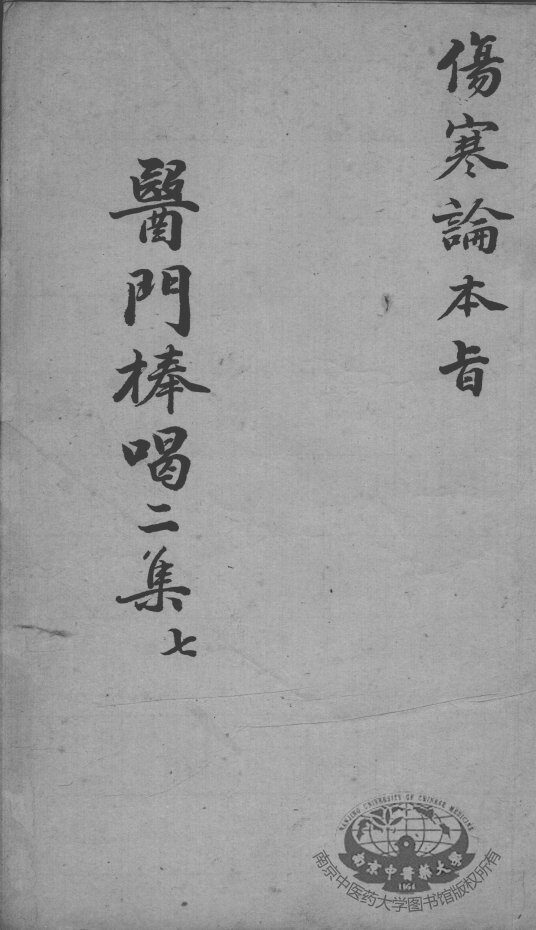 傷寒論本旨
醫門棒喝二集七
NANJING UNIVERSITY OF CHINESE MEDICINE
南京中醫藥大學
1954
南京中医药大学图书馆版权所有